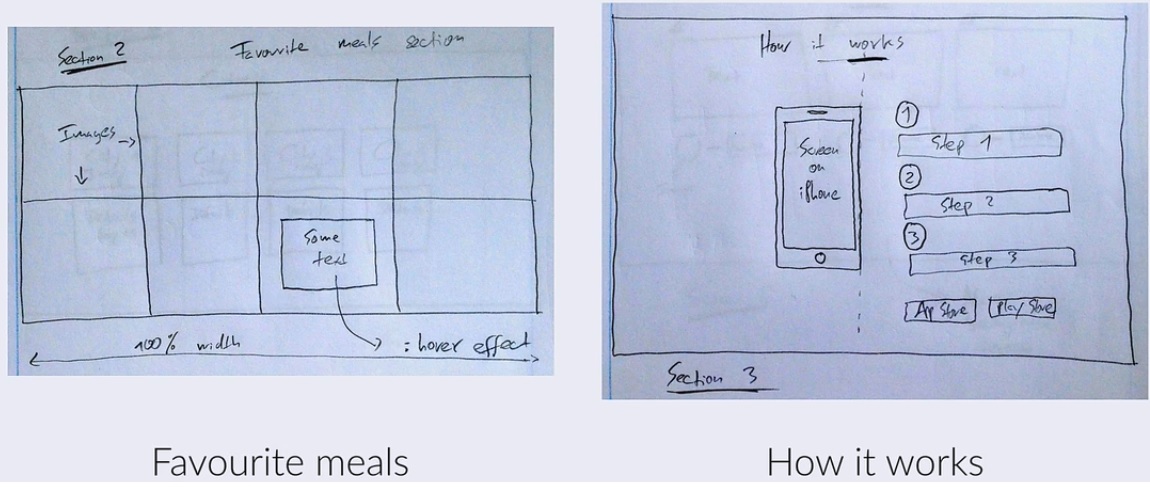 Section 2
Favourite meals section
Images →
↓
Some
text
100% width
: hover effect
How it works
Screen
on
iPhone
1
Step 1
2
Step 2
3
Step 3
App Store
Play Store
Section 3
Favourite meals
How it works